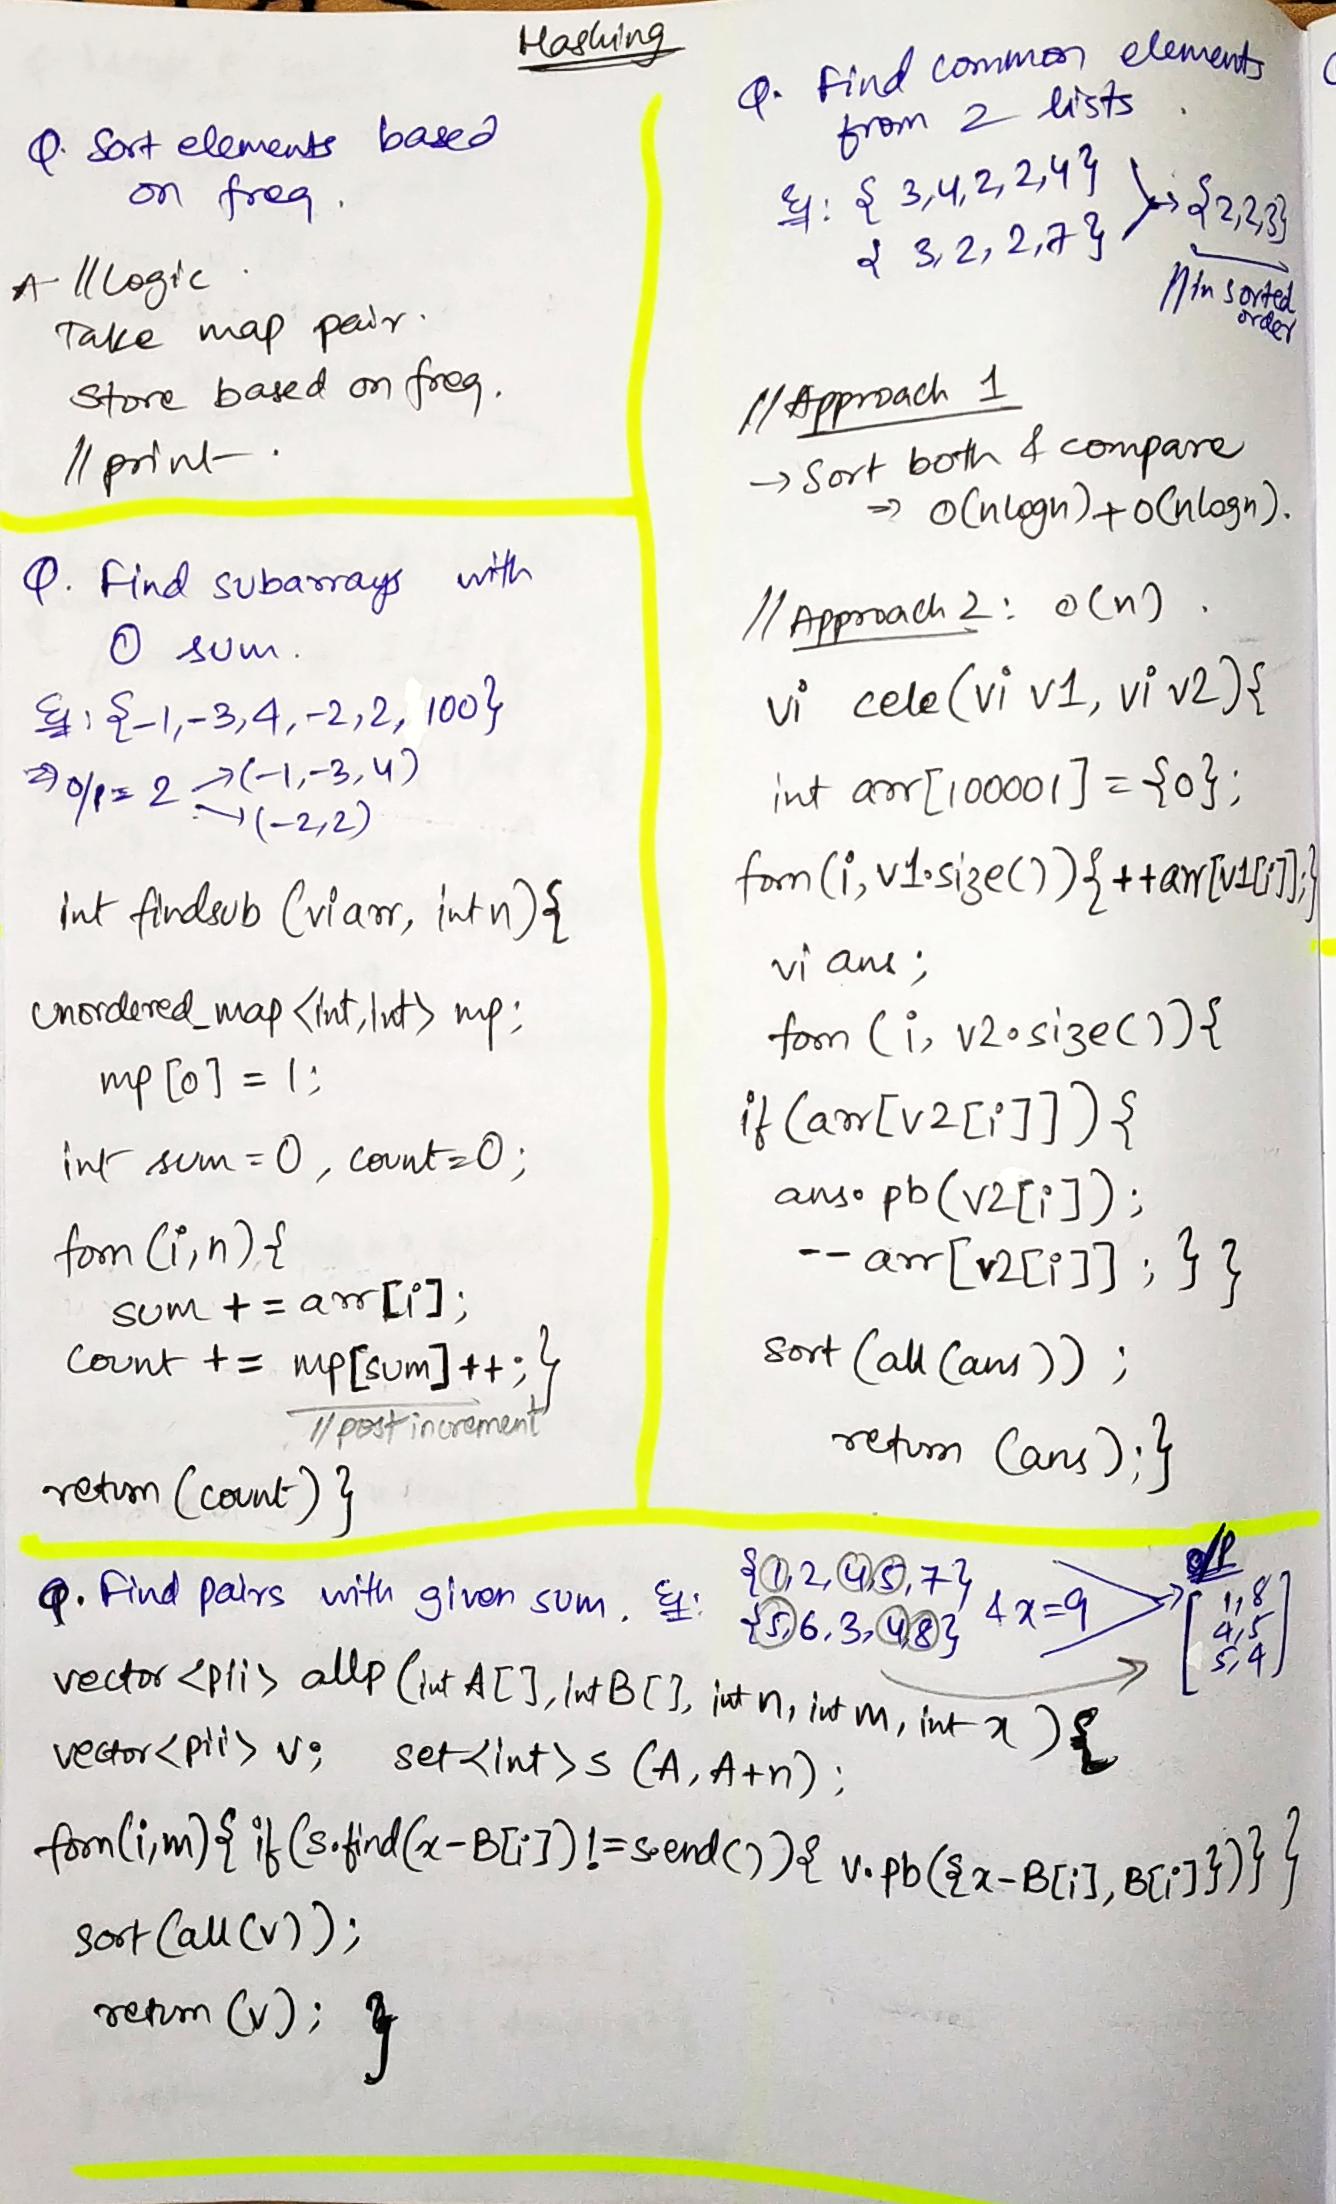 Hashing
Q. Sort elements based
on freq.
A //Logic.
Take map pair.
Store based on freq.
//print.
Q. Find subarrays with
0 sum.
Eg: {-1,-3,4,-2,2, 100}
⇒ o/p = 2 →(-1,-3,4)
→(-2,2)
int findsub (vi arr, int n){
unordered_map <int,int> mp;
mp[0] = 1;
int sum = 0, count = 0;
forn (i,n){
sum += arr[i];
count += mp[sum]++;}
//post increment
return (count) }
Q. Find common elements
from 2 lists.
Eg: { 3,4,2,2,4} → {2,2,3}
{ 3,2,2,7}
//in sorted
order
//Approach 1
→ Sort both & compare
⇒ O(nlogn)+O(nlogn).
//Approach 2: O(n).
vi cele(vi v1, vi v2){
int arr[100001] = {0};
forn (i, v1.size()){++arr[v1[i]];}
vi ans;
forn (i, v2.size()){
if (arr[v2[i]]){
ans.pb(v2[i]);
--arr[v2[i]]; } }
sort (all (ans));
return (ans);}
Q. Find pairs with given sum. Eg: {1,2,4,5,7} & x=9 → o/p
{5,6,3,4,8}
[1,8
4,5
5,4]
vector <pii> allp (int A[], int B[], int n, int m, int x ){
vector<pii> v; set<int>s (A, A+n);
forn(i,m){ if (s.find(x-B[i])!=s.end()){ v.pb({x-B[i], B[i]})} }
sort (all (v));
return (v); }